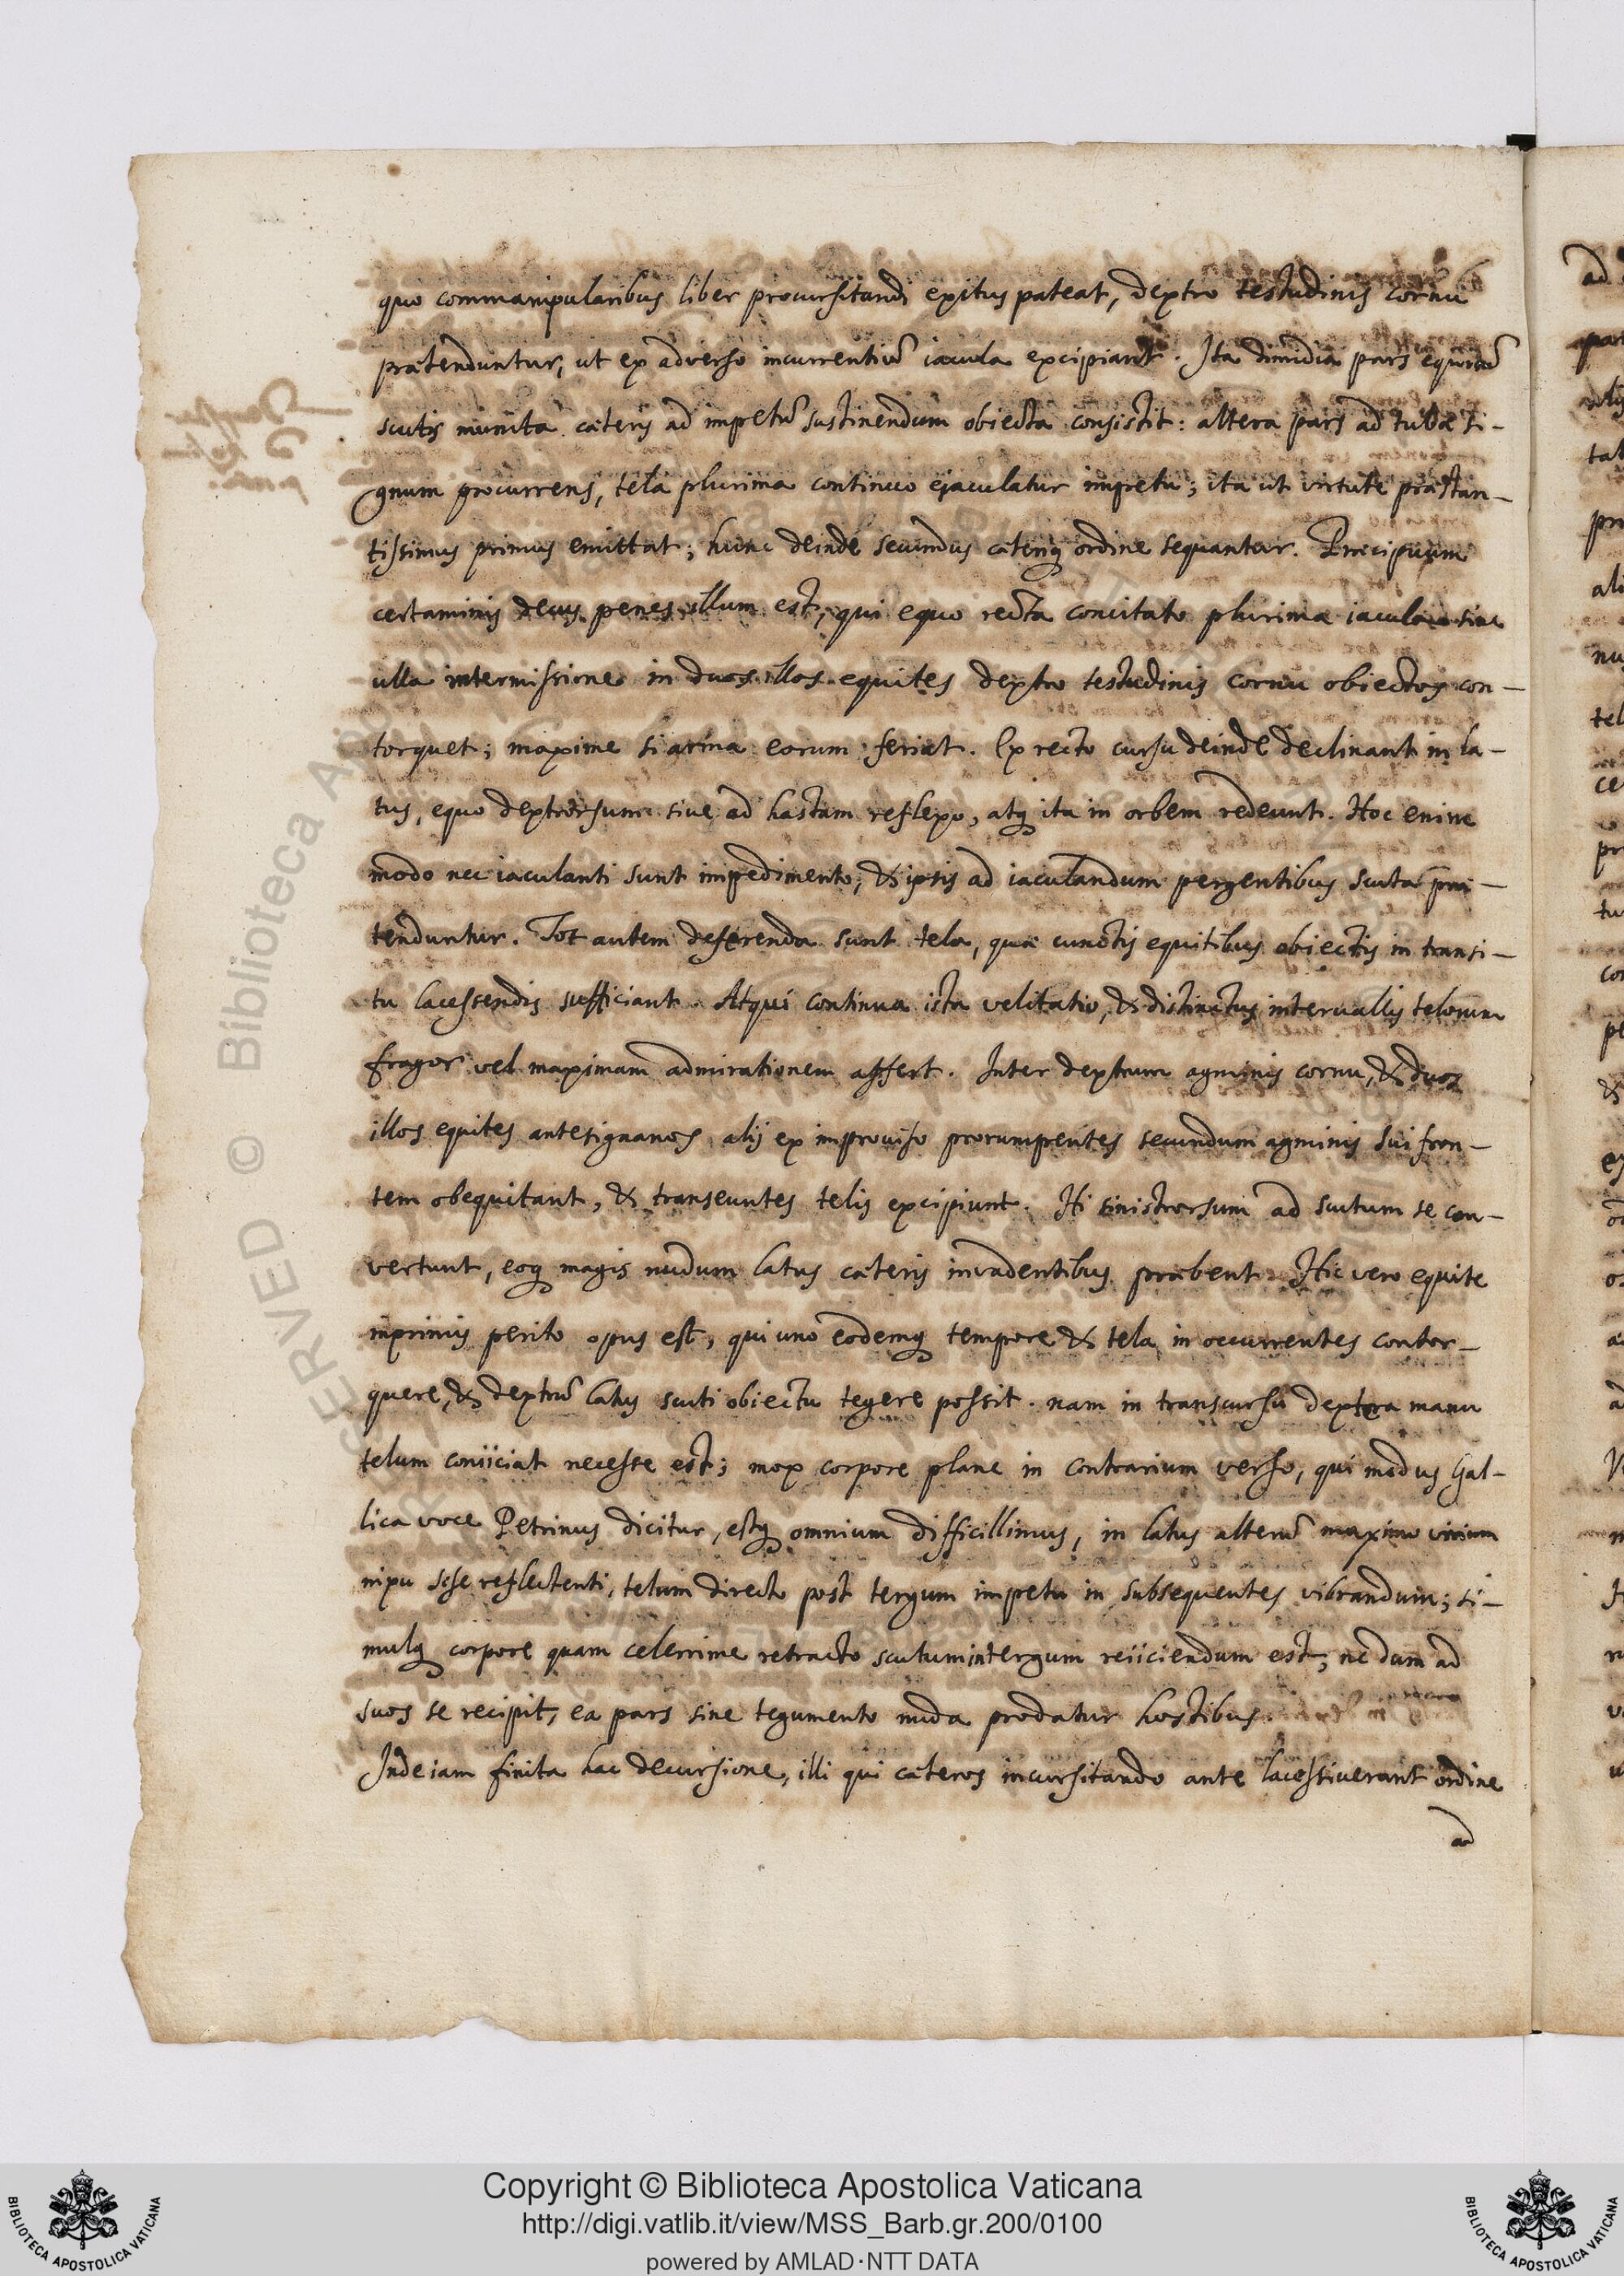 quo commanipularibus liber procursitandi exitus pateat, dextro testudinis cornu
prætenduntur, ut ex adverso incurrentiũ iacula excipiant. Ita dimidia pars equitũ
scutis munita cæteris ad impetũ sustinendum obiecta consistit: altera pars ad tubæ si-
gnum procurrens, tela plurima continuo ejaculatur impetu; ita ut virtute præstan-
tissimus primus emittat; hunc deinde secundus cæteriq; ordine sequantur. Præcipuum
certaminis decus penes illum est, qui equo recta concitato plurima iacula sine
ulla intermissione in duos illos equites dextro testudinis cornu obiectos con-
torquet; maxime si arma eorum feriat. Ex recto cursu deinde declinant in la-
tus, equo dextrorsum sive ad hastam reflexo, atq; ita in orbem redeunt. Hoc enim
modo nec iaculanti sunt impedimento, & ipsis ad iaculandum pergentibus scuta præ-
tenduntur. Tot autem deferenda sunt tela, quæ cunctis equitibus obiectis in transi-
tu lacessendis sufficiant. Atqui continua ista velitatio, & distinctus intervallis telorum
fragor vel maximam admirationem affert. Inter dextrum agminis cornu, & duos
illos equites antesignanos alij ex improviso prorumpentes secundum agminis sui fron-
tem obequitant, & transeuntes telis excipiunt. Hi sinistrorsum ad scutum se con-
vertunt, eoq; magis nudum latus cæteris invadentibus præbent. Hic vero equite
inprimis perito opus est, qui uno eodemq; tempore & tela in occurrentes contor-
quere, & dextrũ latus scuti obiectu tegere possit. nam in transcursu dextera manu
telum coniiciat necesse est; mox corpore plane in contrarium verso, qui modus Gal-
lica voce Petrinus dicitur, estq; omnium difficillimus, in latus alterũ maximo virium
nixu sese reflectenti, telum directo post tergum impetu in subsequentes vibrandum; si-
mulq; corpore quam celerrime retracto scutum in tergum reiiciendum est, ne dum ad
suos se recipit, ea pars sine tegumento nuda prodatur hostibus.
Inde iam finita hac decursione, illi qui cæteros incursitando ante lacessiverant ordine
ad
Copyright © Biblioteca Apostolica Vaticana
http://digi.vatlib.it/view/MSS_Barb.gr.200/0100
powered by AMLAD·NTT DATA
BIBLIOTECA APOSTOLICA VATICANA
BIBLIOTECA APOSTOLICA VATICANA